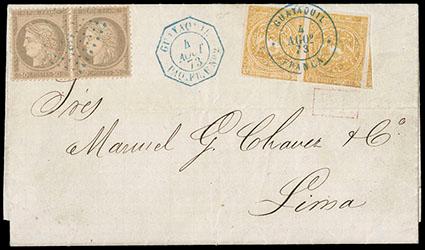 GUAYAQUIL
4
AOUT
73
PAQ. FR. F Nº2
GUAYAQUIL
4
AGOº
73
FRANCA
Sres
Manuel G. Chavez & Cº
Lima